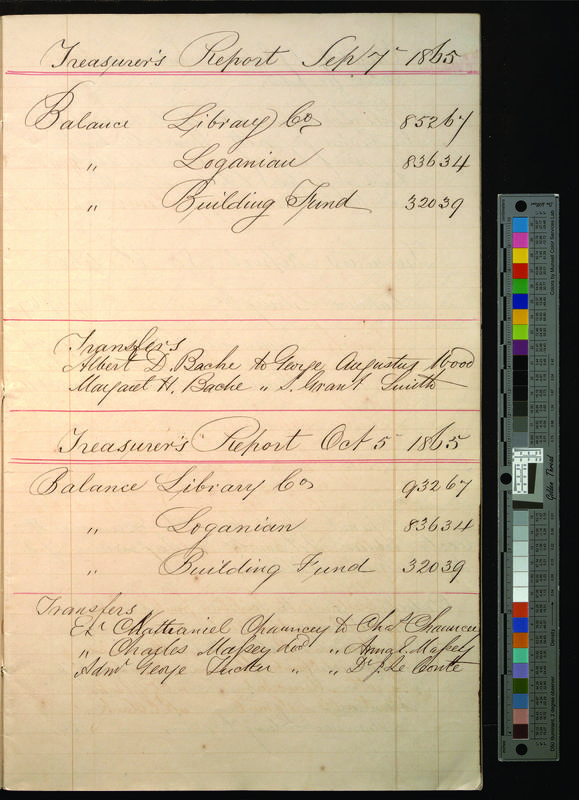 Treasurer's Report Sep 7 1865
Balance Library Co 85267
" Loganian 83634
" Building Fund 32039
Transfers
Albert D. Bache to George Augustus Wood
Margaret H. Bache " S. Grant Smith
Treasurer's Report Oct 5 1865
Balance Library Co 93267
" Loganian 83634
" Building Fund 32039
Transfers
Exr Nathaniel Chauncey to Chas Chauncey
" Charles Massey decd " Anna E. Massey
Admr George Tucker " " Dr J. Le Conte